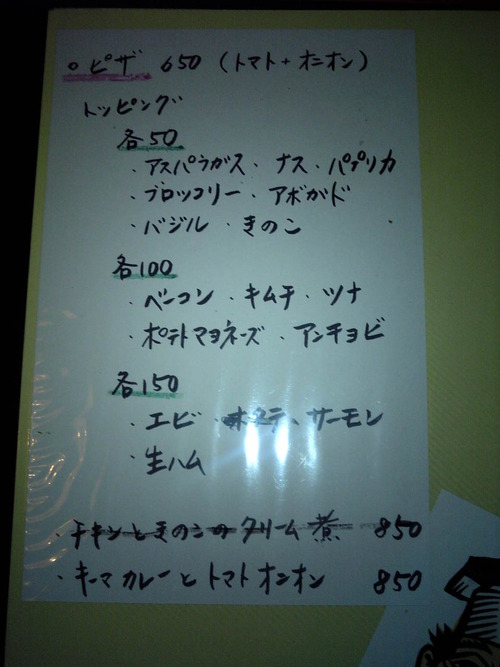 ◦ ピザ 650 (トマト+オニオン)
トッピング
各50
・アスパラガス・ナス・パプリカ
・ブロッコリー・アボガド
・バジル・きのこ
各100
・ベーコン・キムチ・ツナ
・ポテトマヨネーズ・アンチョビ
各150
・エビ・ホタテ・サーモン
・生ハム
・チキンときのこのクリーム煮 850
・キーマカレーとトマトオニオン 850